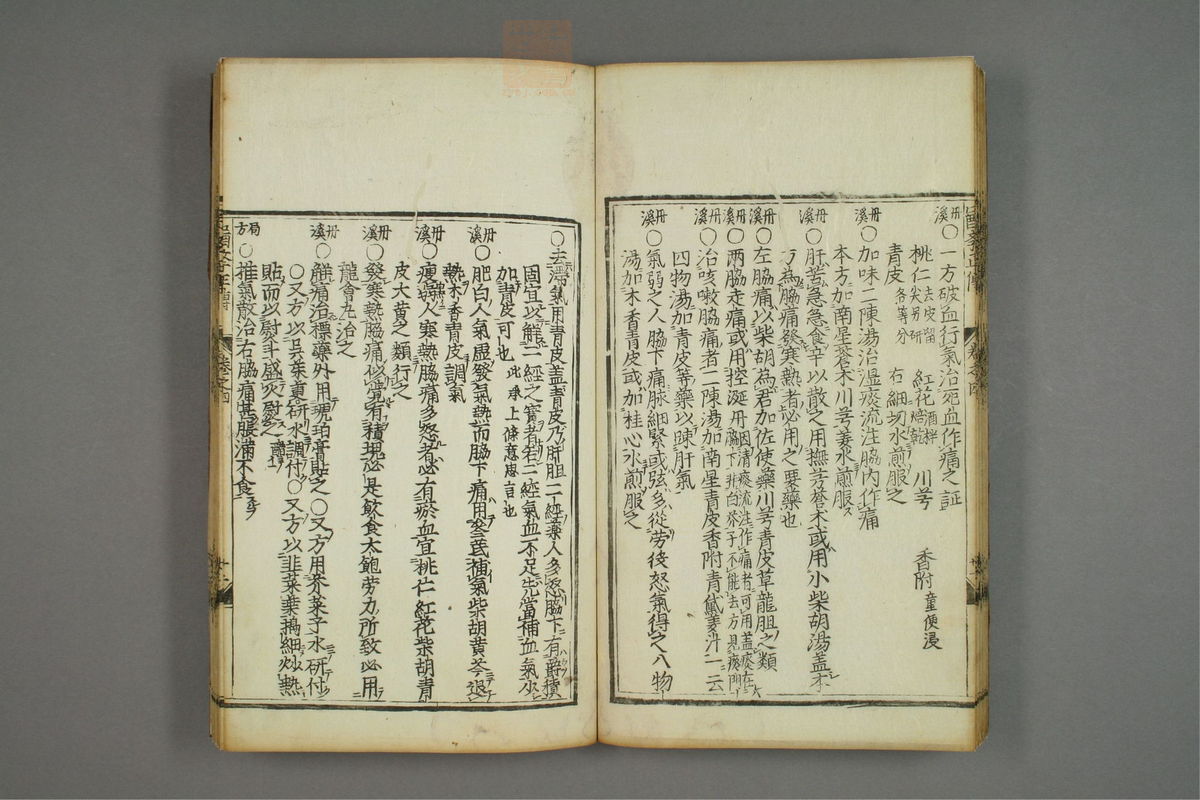 丹溪〇一方破血行氣治死血作痛之証
桃仁去皮留尖另研 紅花酒拌焙乾 川芎 香附童便浸
青皮各等分 右細切水煎服之
丹溪〇加味二陳湯治湿痰流注脇内作痛
本方加南星蒼朮川芎姜水煎服ス
丹溪〇肝苦急急食辛以散之用撫芎蒼朮或用小柴胡湯盖本
方為脇痛發寒熱者必用之要藥也
丹溪〇左脇痛以柴胡為君加佐使藥川芎青皮草龍胆之類
丹溪〇兩脇走痛或用控涎丹因清痰流注作痛者可用盖痰在脇下非白芥子不能去方見痰門
丹溪〇治咳嗽脇痛者二陳湯加南星青皮香附青黛姜汁一云
四物湯加青皮等藥以疎肝氣
丹溪〇氣弱之人脇下痛脉細緊或弦多從労後怒氣得之八物
湯加木香青皮或加桂心水煎服之
〇去滯氣用青皮盖青皮乃肝胆二經藥人多怒脇下有欝積
固宜以解二經之實者若二經氣血不足先當補血氣少
加青皮可也此承上條意思言也
丹溪〇肥白人氣虚發氣熱而脇下痛用參芪補氣柴胡黄芩退
熱木香青皮調氣
丹溪〇瘦人寒熱脇痛多怒者必有瘀血宜桃仁紅花柴胡青
皮大黄之類行之
丹溪〇發寒熱脇痛似覺有積塊必是飲食太飽労力所致必用
龍會丸治之
丹溪〇觧痛治標藥外用琥珀膏貼之〇又方用芥菜子水研付
〇又方以呉茱萸研水調付〇又方以韭菜葉搗細炒熱
貼而以熨斗盛火熨之
局方〇推氣散治右脇痛甚脹滿不食